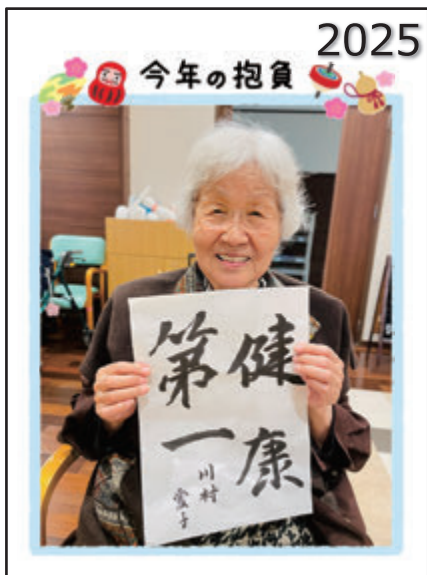 2025
今年の抱負
健康
第一
川村
愛子